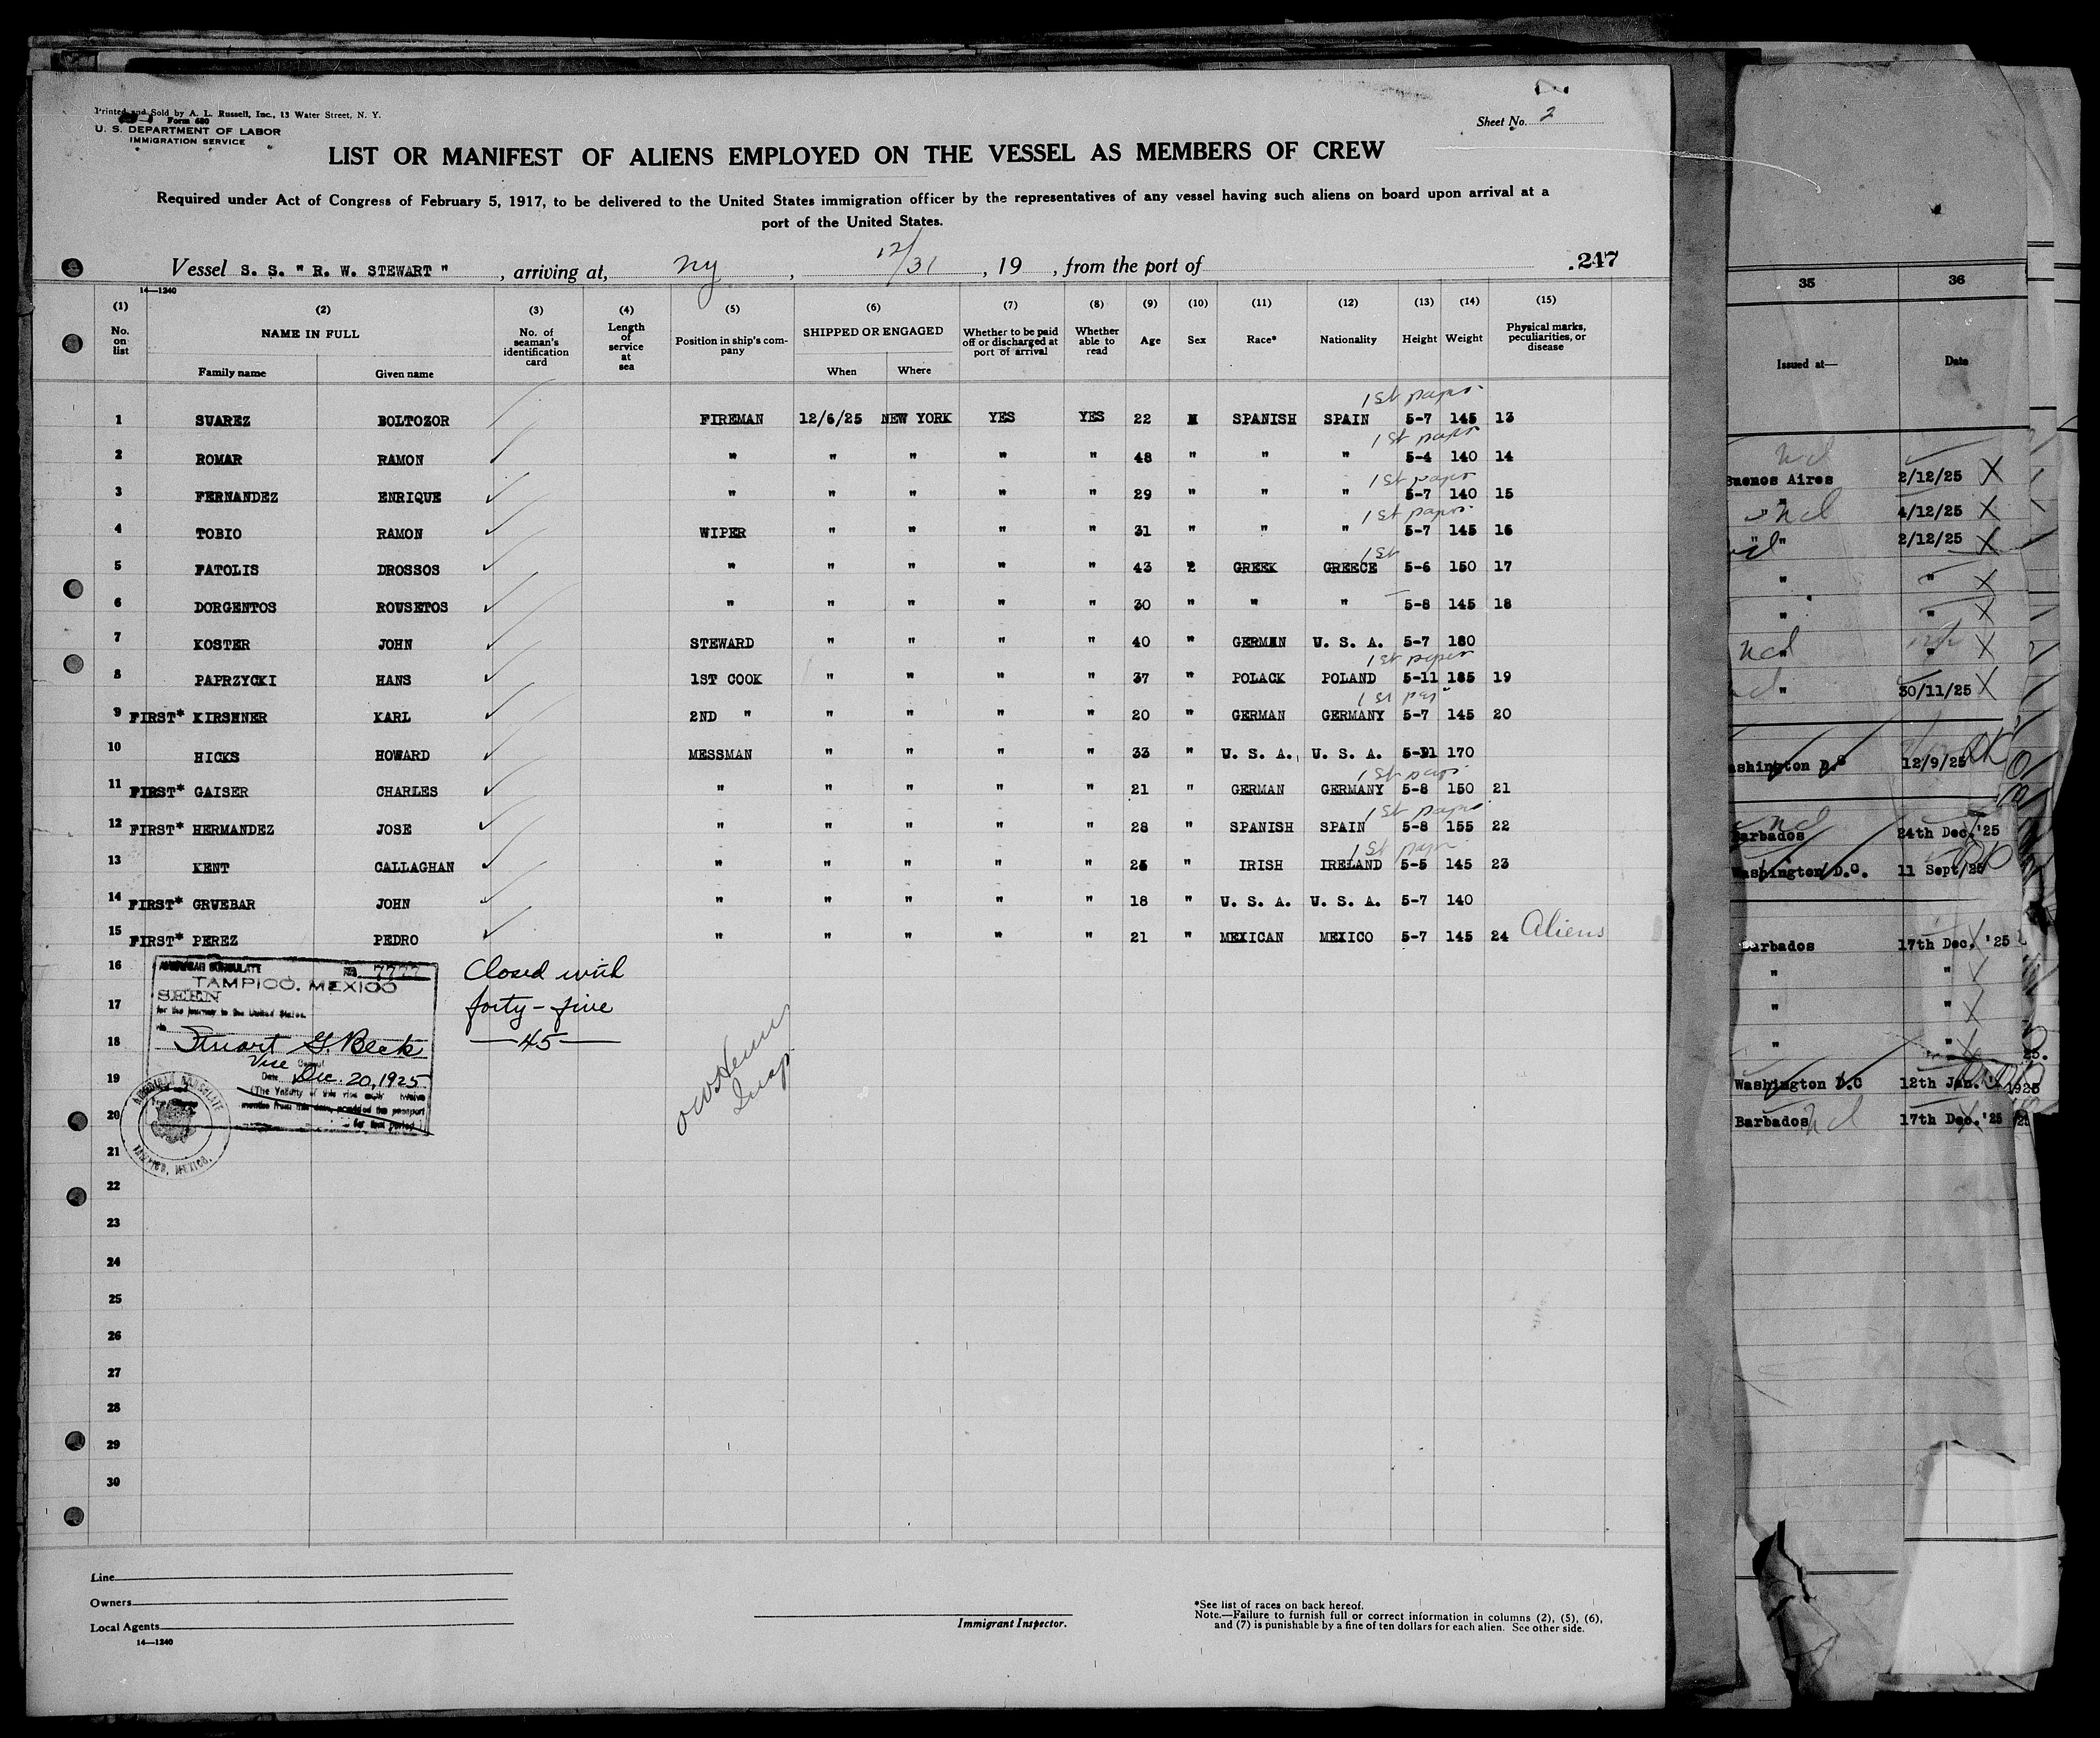 Printed and Sold by A. L. Russell, Inc., 13 Water Street, N. Y.
Form 680
U. S. DEPARTMENT OF LABOR
IMMIGRATION SERVICE
Sheet No. 2
LIST OR MANIFEST OF ALIENS EMPLOYED ON THE VESSEL AS MEMBERS OF CREW
Required under Act of Congress of February 5, 1917, to be delivered to the United States immigration officer by the representatives of any vessel having such aliens on board upon arrival at a
port of the United States.
Vessel S. S. " R. W. STEWART " , arriving at, NY , 12/31 , 19 , from the port of
.247
14—1240
(1) (2) (3) (4) (5) (6) (7) (8) (9) (10) (11) (12) (13) (14) (15)
No. on list
NAME IN FULL
Family name Given name
No. of seaman's identification card
Length of service at sea
Position in ship's company
SHIPPED OR ENGAGED
When Where
Whether to be paid off or discharged at port of arrival
Whether able to read
Age Sex Race* Nationality Height Weight
Physical marks, peculiarities, or disease
1st paper
1 SUAREZ BOLTOZOR FIREMAN 12/6/25 NEW YORK YES YES 22 M SPANISH SPAIN 5-7 145 13
1st paper
2 ROMAR RAMON " " " " " 48 " " " 5-4 140 14
1st paper
3 FERNANDEZ ENRIQUE " " " " " 29 " " " 5-7 140 15
1st paper
4 TOBIO RAMON WIPER " " " " 31 " " " 5-7 145 16
1st
5 FATOLIS DROSSOS " " " " " 43 GREEK GREECE 5-6 150 17
6 DORGENTOS ROUSETOS " " " " " 30 " " " 5-8 145 18
7 KOSTER JOHN STEWARD " " " " 40 " GERMAN U. S. A. 5-7 180
1st paper
8 PAPRZYCKI HANS 1ST COOK " " " " 37 " POLACK POLAND 5-11 185 19
1st
9 FIRST* KIRSHNER KARL 2ND " " " " " 20 " GERMAN GERMANY 5-7 145 20
10 HICKS HOWARD MESSMAN " " " " 33 " U. S. A. U. S. A. 5-11 170
1st paper
11 FIRST* GAISER CHARLES " " " " " 21 " GERMAN GERMANY 5-8 150 21
1st paper
12 FIRST* HERMANDEZ JOSE " " " " " 28 " SPANISH SPAIN 5-8 155 22
1st paper
13 KENT CALLAGHAN " " " " " 25 " IRISH IRELAND 5-5 145 23
14 FIRST* GRUEBAR JOHN " " " " " 18 " U. S. A. U. S. A. 5-7 140
15 FIRST* PEREZ PEDRO " " " " " 21 " MEXICAN MEXICO 5-7 145 24 Aliens
16
17
18
19
20
21
22
23
24
25
26
27
28
29
30
AMERICAN CONSULATE No. 7777
TAMPICO, MEXICO
SEEN
for the journey to the United States.
via
Stuart G. Beck
Vice Consul
Date Dec. 20, 1925
(The Validity of this visa expires twelve
months from this date, provided the passport
for that period.)
AMERICAN CONSULATE
TAMPICO, MEXICO.
Closed with
forty-five
—45—
Insp
Line
Owners
Local Agents
14—1240
Immigrant Inspector.
*See list of races on back hereof.
Note.—Failure to furnish full or correct information in columns (2), (5), (6),
and (7) is punishable by a fine of ten dollars for each alien. See other side.
35 36
Issued at— Date
Buenos Aires 2/12/25 X
" 4/12/25 X
" " 2/12/25 X
" " X
" " X
" " X
" 30/11/25 X
Washington D.C 12/9/25
Barbados 24th Dec. '25
Washington D.C. 11 Sept/25
Barbados 17th Dec. '25
" "
" "
" "
Washington D.C 12th Jan. 1925
Barbados 17th Dec. '25